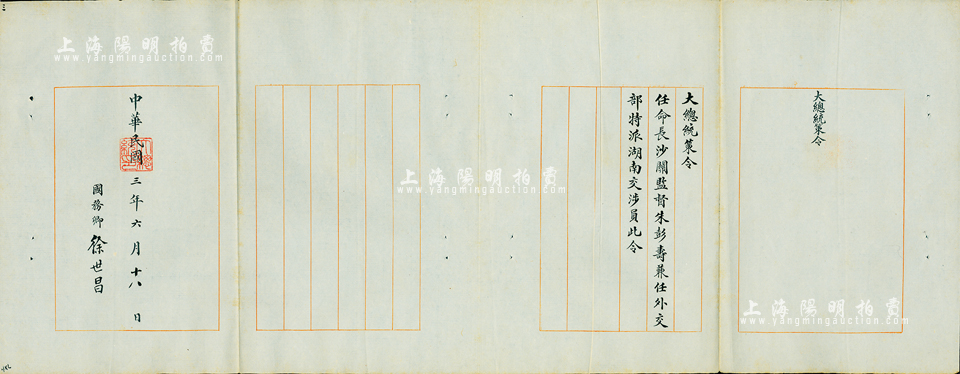 大總統策令
大總統策令
任命長沙關監督朱彭壽兼任外交
部特派湖南交涉員此令
中華民國三年六月十八日
國務卿徐世昌
上海陽明拍賣
www.yangmingauction.com
上海陽明拍賣
www.yangmingauction.com
上海陽明拍賣
www.yangmingauction.com